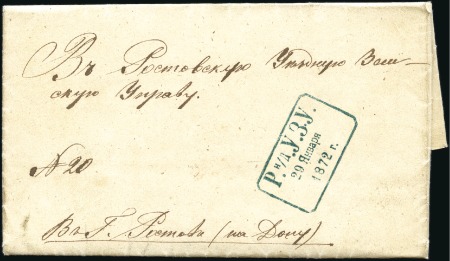 Въ Ростовскую Уѣздную Зем-
скую Управу.
Р. н/Д. У. З. У.
29 Января
1872 г.
№ 20
Въ Г. Ростовъ (на Дону)